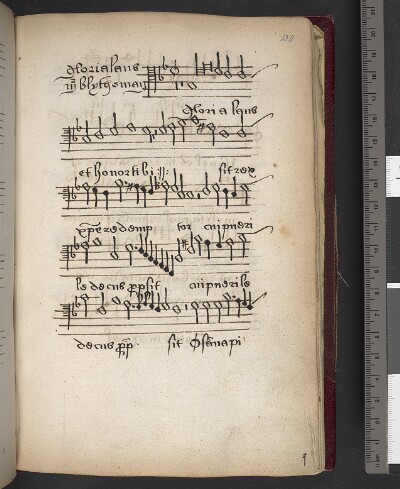 gloria laus
w blytheman
gloria laus
et honor tibi :||: sit rex
xp̄e redemp tor cui pueri
le decus prpsit cui puerile
decus prp̄ sit Osanna pi